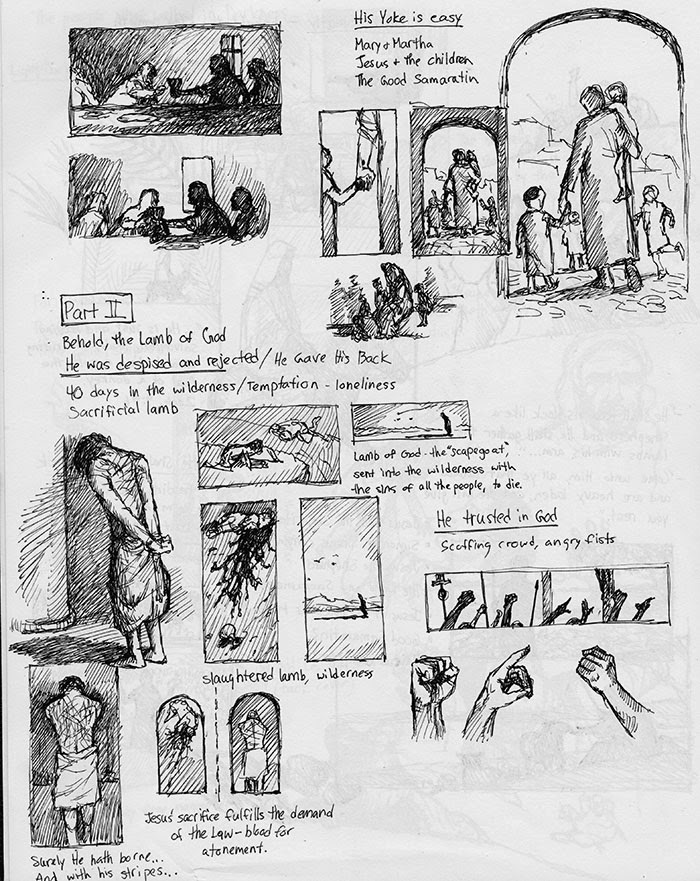 His Yoke is easy
Mary & Martha
Jesus & the children
The Good Samaratin
Part II
Behold, the Lamb of God
He was despised and rejected/He Gave His Back
40 days in the wilderness/Temptation - loneliness
Sacrificial lamb
Lamb of God - the "scapegoat,
sent into the wilderness with
the sins of all the people, to die.
He trusted in God
Scoffing crowd, angry fists
slaughtered lamb, wilderness
Jesus' sacrifice fulfills the demand
of the Law - blood for
atonement.
Surely He hath borne...
And with his stripes...